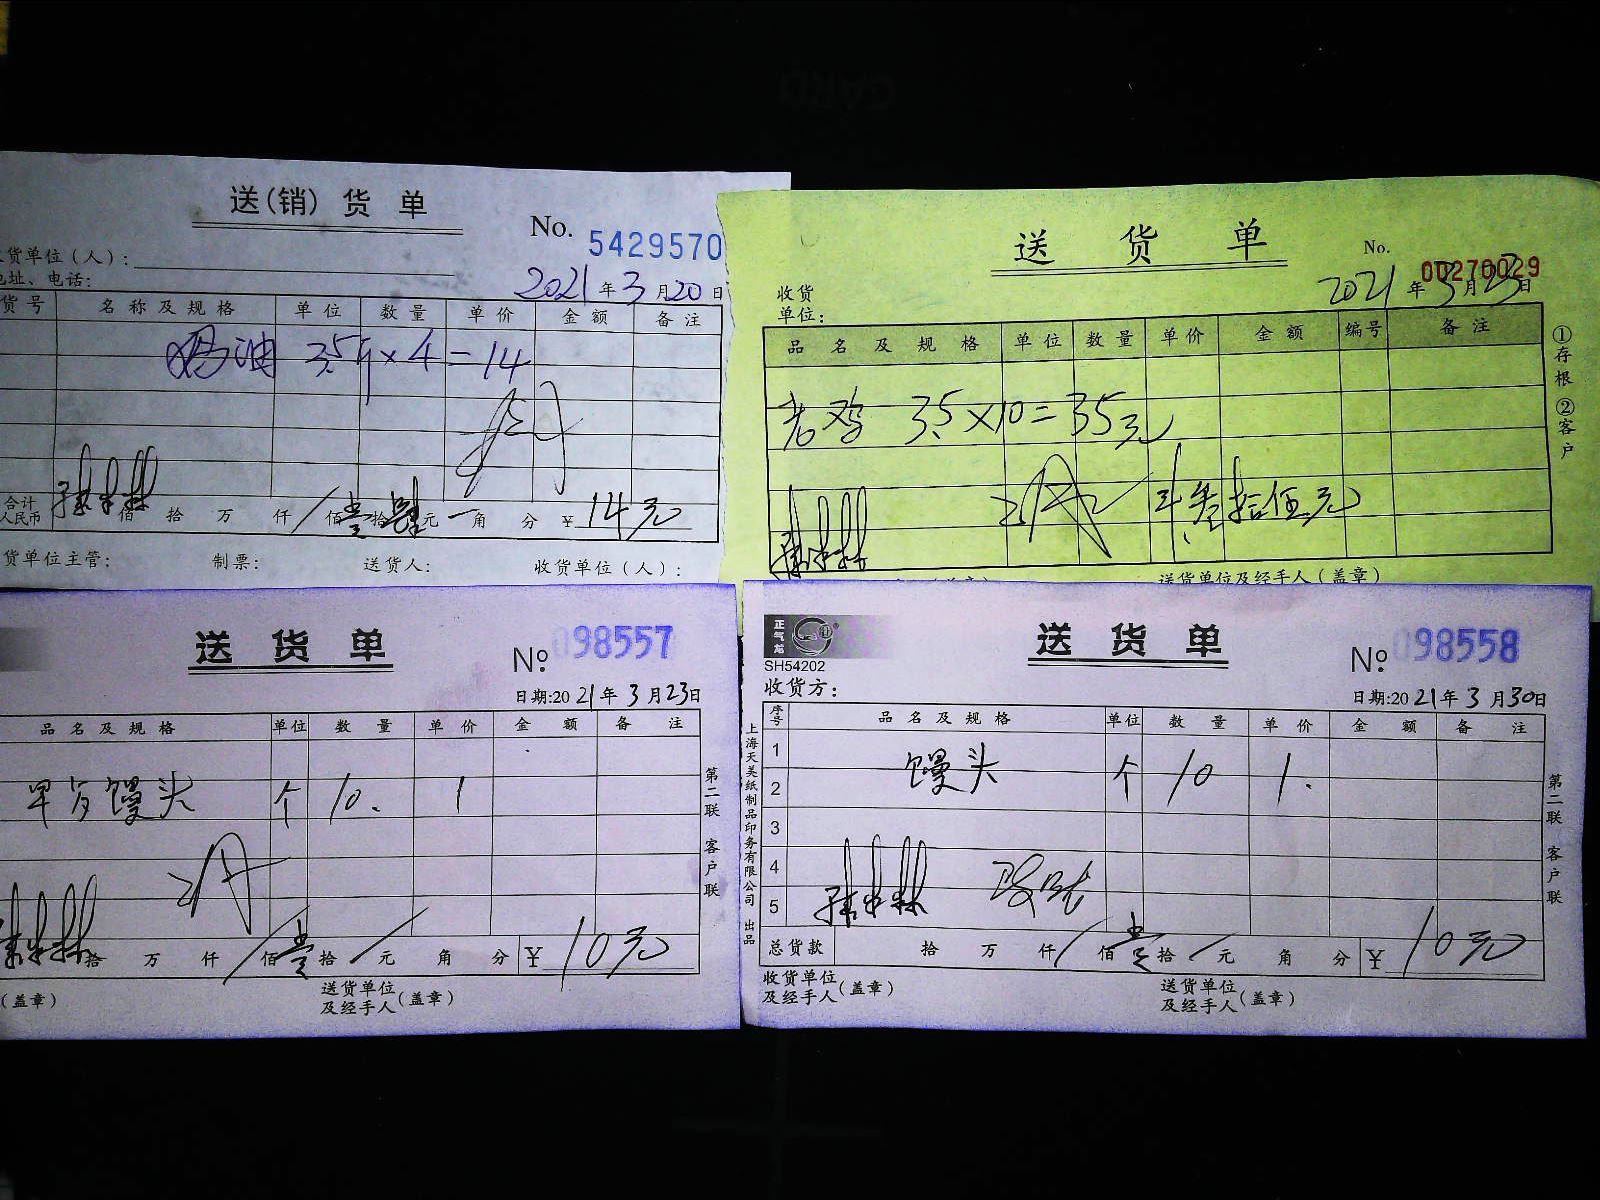 送(销)货单
No. 5429570
货单位(人):
地址、电话:
2021年3月20日
货号 名称及规格 单位 数量 单价 金额 备注
奶油 3.5斤×4=14
合计
人民币 佰 拾 万 仟 佰 壹 拾 肆 元 角 分 ¥14元
货单位主管: 制票: 送货人: 收货单位(人):
送货单
No. 00270029
2021年3月23日
收货
单位:
品名及规格 单位 数量 单价 金额 编号 备注
老鸡 3.5×10=35元
叁拾伍元
①存根 ②客户
送货单位及经手人(盖章)
送货单
№ 098557
日期:2021年3月23日
品名及规格 单位 数量 单价 金额 备注
馒头 个 10. 1
拾 万 仟 佰 壹 拾 元 角 分 ¥10元
(盖章) 送货单位
及经手人(盖章)
第二联 客户联
正气龙
SH54202
送货单
№ 098558
收货方:
日期:2021年3月30日
序号 品名及规格 单位 数量 单价 金额 备注
1
馒头 个 10 1.
2
3
4
5
总货款 拾 万 仟 佰 壹 拾 元 角 分 ¥10元
收货单位
及经手人(盖章) 送货单位
及经手人(盖章)
上海天美纸制品印务有限公司 出品
第二联 客户联